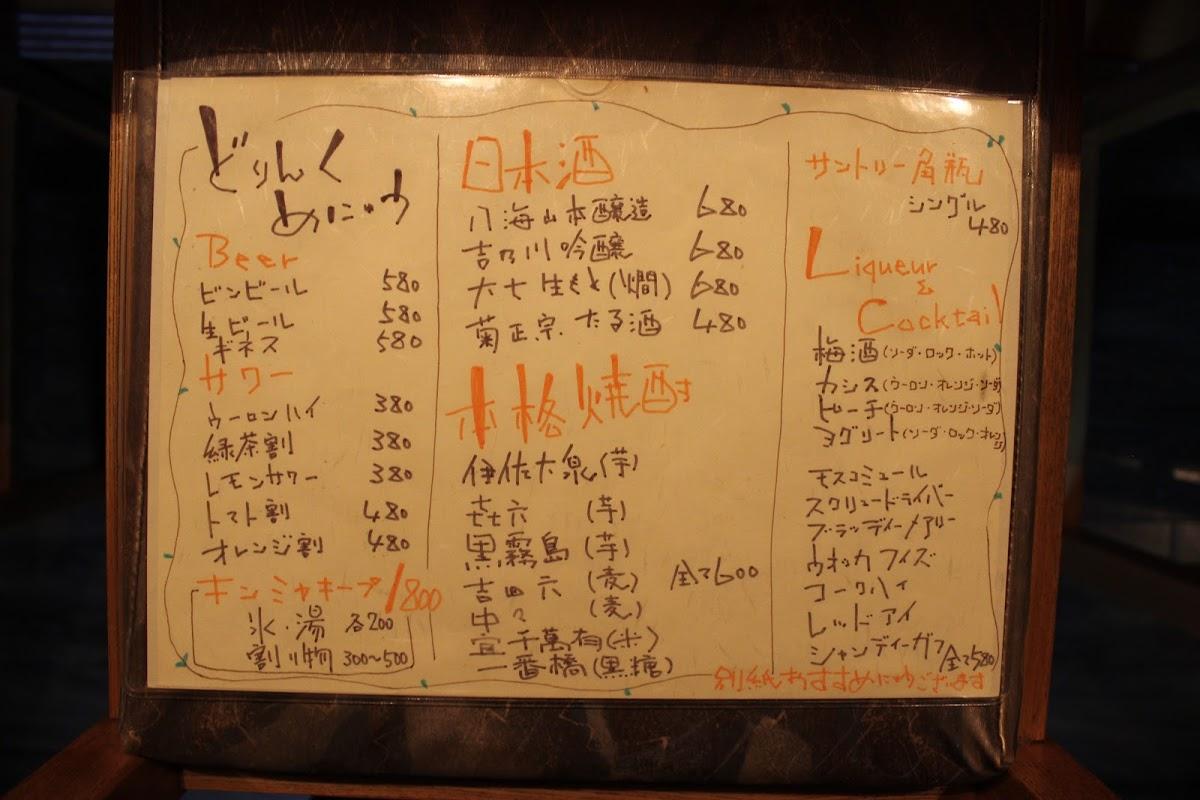 どりんく
めにゅう
Beer
ビンビール 580
生ビール 580
ギネス 580
サワー
ウーロンハイ 380
緑茶割 380
レモンサワー 380
トマト割 480
オレンジ割 480
キンミヤキープ 1800
氷・湯 各200
割り物 300〜500
日本酒
八海山本醸造 680
吉乃川吟醸 680
大七生もと(燗) 680
菊正宗たる酒 480
本格焼酎
伊佐大泉(芋)
㐂六 (芋)
黒霧島(芋)
吉四六 (麦) 全て600
中々 (麦)
宜千萬有(米)
一番橋(黒糖)
サントリー角瓶
シングル
480
Liqueur
&
Cocktail
梅酒(ソーダ・ロック・ホット)
カシス(ウーロン・オレンジ・ソーダ)
ピーチ(ウーロン・オレンジ・ソーダ)
ヨグリート(ソーダ・ロック・オレンジ)
モスコミュール
スクリュードライバー
ブラッディーメアリー
ウオッカフィズ
コークハイ
レッドアイ
シャンディーガフ 全て580
別紙おすすめにゅうございます